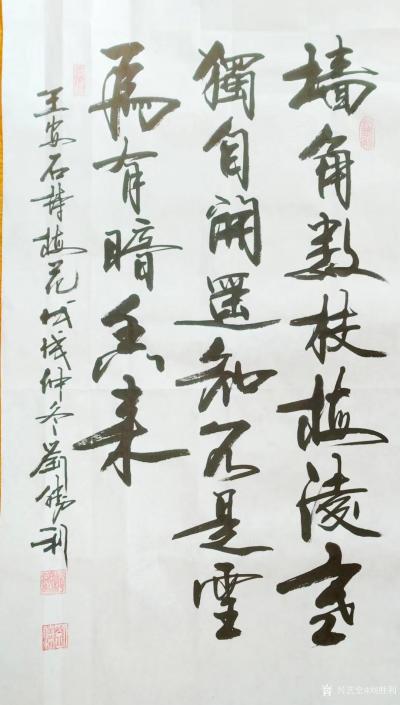 墙角数枝梅凌寒
獨自開遥知不是雪
為有暗香来
王安石詩梅花戊戌仲冬劉勝利
刘胜利